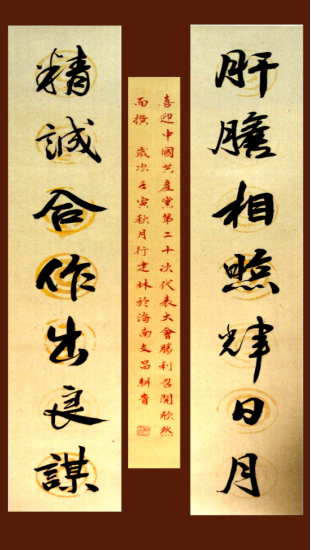 肝膽相照輝日月
喜迎中國共產黨第二十次代表大會勝利召開欣然
而撰 歲次壬寅秋月行建林於海南文昌耕書
精誠合作出良謀